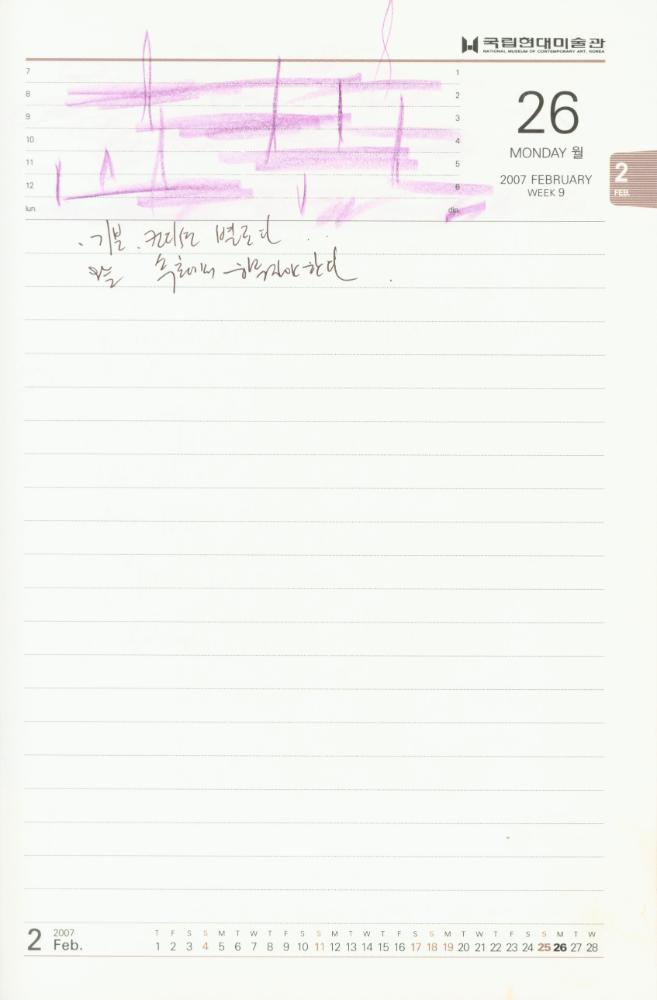 국립현대미술관
NATIONAL MUSEUM OF CONTEMPORARY ART, KOREA
7 1
8 2
9 3
10 4
11 5
12 6
lun. din.
26
MONDAY 월
2007 FEBRUARY
WEEK 9
2
FEB.
· 기분 . 컨디션 별로다
오늘 속초에서 하루자야 한다
2 2007
Feb.
T F S S M T W T F S S M T W T F S S M T W T F S S M T W
1 2 3 4 5 6 7 8 9 10 11 12 13 14 15 16 17 18 19 20 21 22 23 24 25 26 27 28